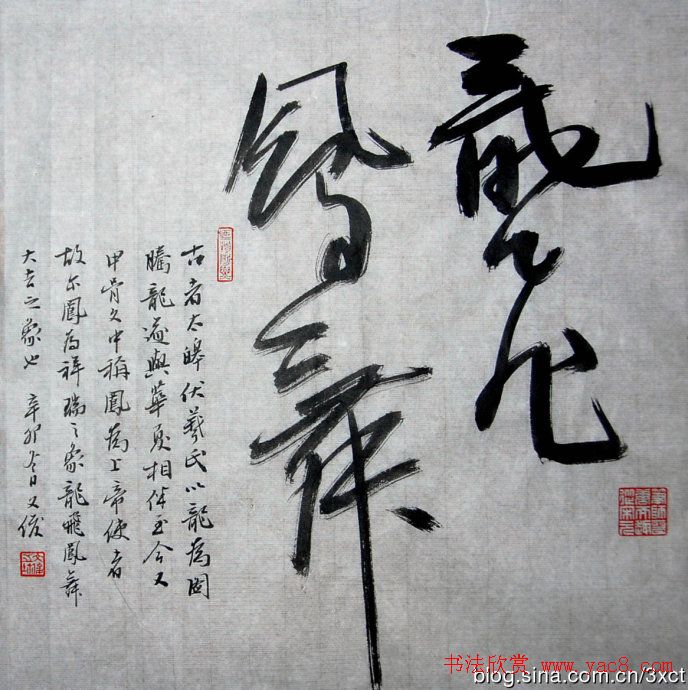 龍飛
鳳舞
古者太皞伏羲氏以龍為图
騰龍遂與華夏相伴至今又
甲骨文中稱鳳為上帝使者
故尔鳳為祥瑞之象龍飛鳳舞
大吉之象也 辛卯冬日又俊
书法欣赏 www.yac8.com
blog.sina.com.cn/3xct